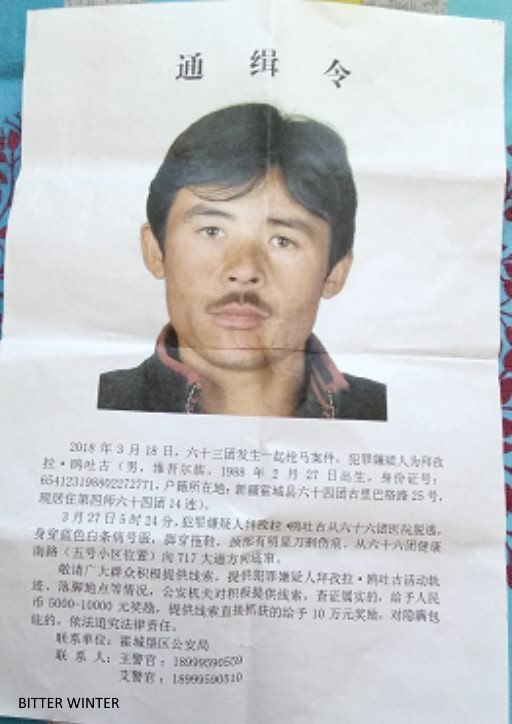 通 缉 令
2018 年 3 月 18 日，六十三团发生一起抢马案件，犯罪嫌疑人为拜孜
拉·鸥吐古（男，维吾尔族，1988 年 2 月 27 日出生，身份证号：
654123198802272771，户籍所在地：新疆霍城县六十四团古里巴格路 25 号，
现居住第四师六十四团 14 连）。
3 月 27 日 5 时 24 分，犯罪嫌疑人拜孜拉·鸥吐古从六十六团医院脱逃，
身穿蓝色白条病号服，脚穿拖鞋，颈部有明显刀割伤痕，从六十六团健康
南路（五号小区位置）向 717 大道方向逃窜。
敬请广大群众积极提供线索，提供犯罪嫌疑人拜孜拉·鸥吐古活动轨
迹、落脚地点等情况，公安机关对积极提供线索，查证属实的，给予人民
币 5000-10000 元奖励，提供线索直接抓获的给予 10 万元奖励，对隐瞒包
庇的，依法追究法律责任。
联系单位：霍城垦区公安局
联 系 人：王警官：18999590559
艾警官：18999590510
BITTER WINTER